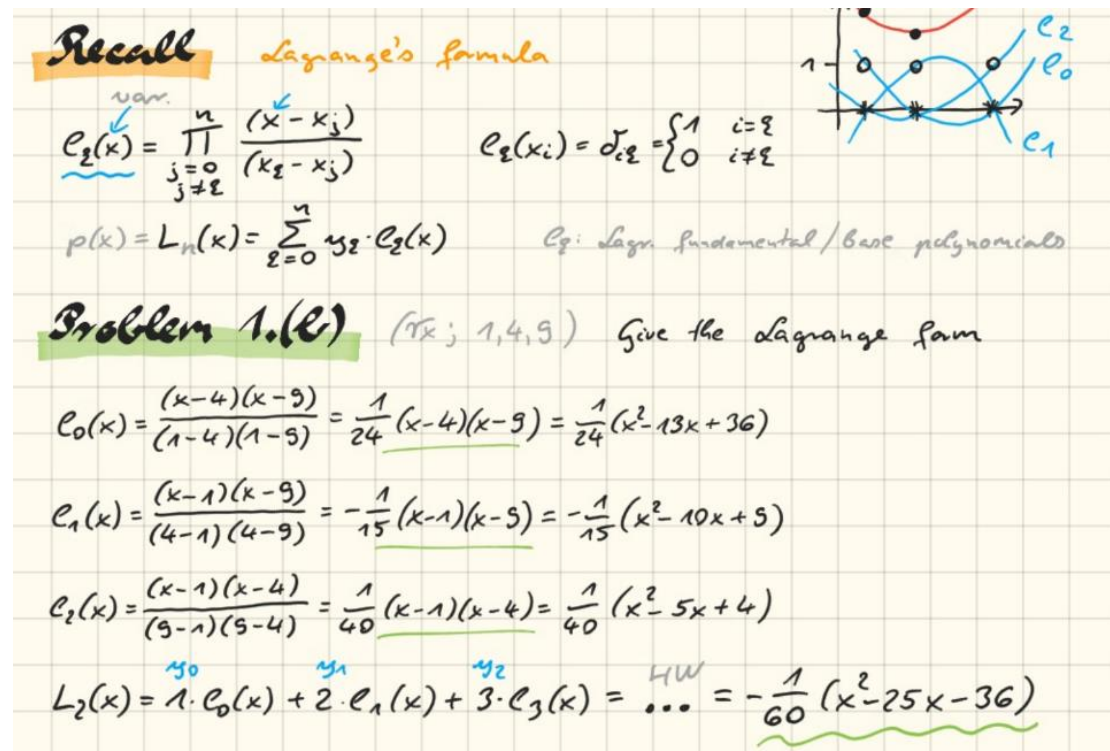 Recall Lagrange's formula
1 ℓ₂ ℓ₀ ℓ₁
var.
ℓₖ(x) = ∏_{j=0, j≠k}^{n} (x - xⱼ)/(xₖ - xⱼ) ℓₖ(xᵢ) = δᵢₖ = {1 i=k, 0 i≠k
p(x) = Lₙ(x) = ∑_{k=0}^{n} yₖ · ℓₖ(x) ℓₖ: Lagr. fundamental/base polynomials
Problem 1.(b) (√x; 1,4,9) Give the Lagrange form
ℓ₀(x) = (x-4)(x-9)/(1-4)(1-9) = 1/24 (x-4)(x-9) = 1/24 (x²-13x+36)
ℓ₁(x) = (x-1)(x-9)/(4-1)(4-9) = -1/15 (x-1)(x-9) = -1/15 (x²-10x+9)
ℓ₂(x) = (x-1)(x-4)/(9-1)(9-4) = 1/40 (x-1)(x-4) = 1/40 (x²-5x+4)
y₀ y₁ y₂ HW
L₂(x) = 1·ℓ₀(x) + 2·ℓ₁(x) + 3·ℓ₃(x) = ... = -1/60 (x²-25x-36)